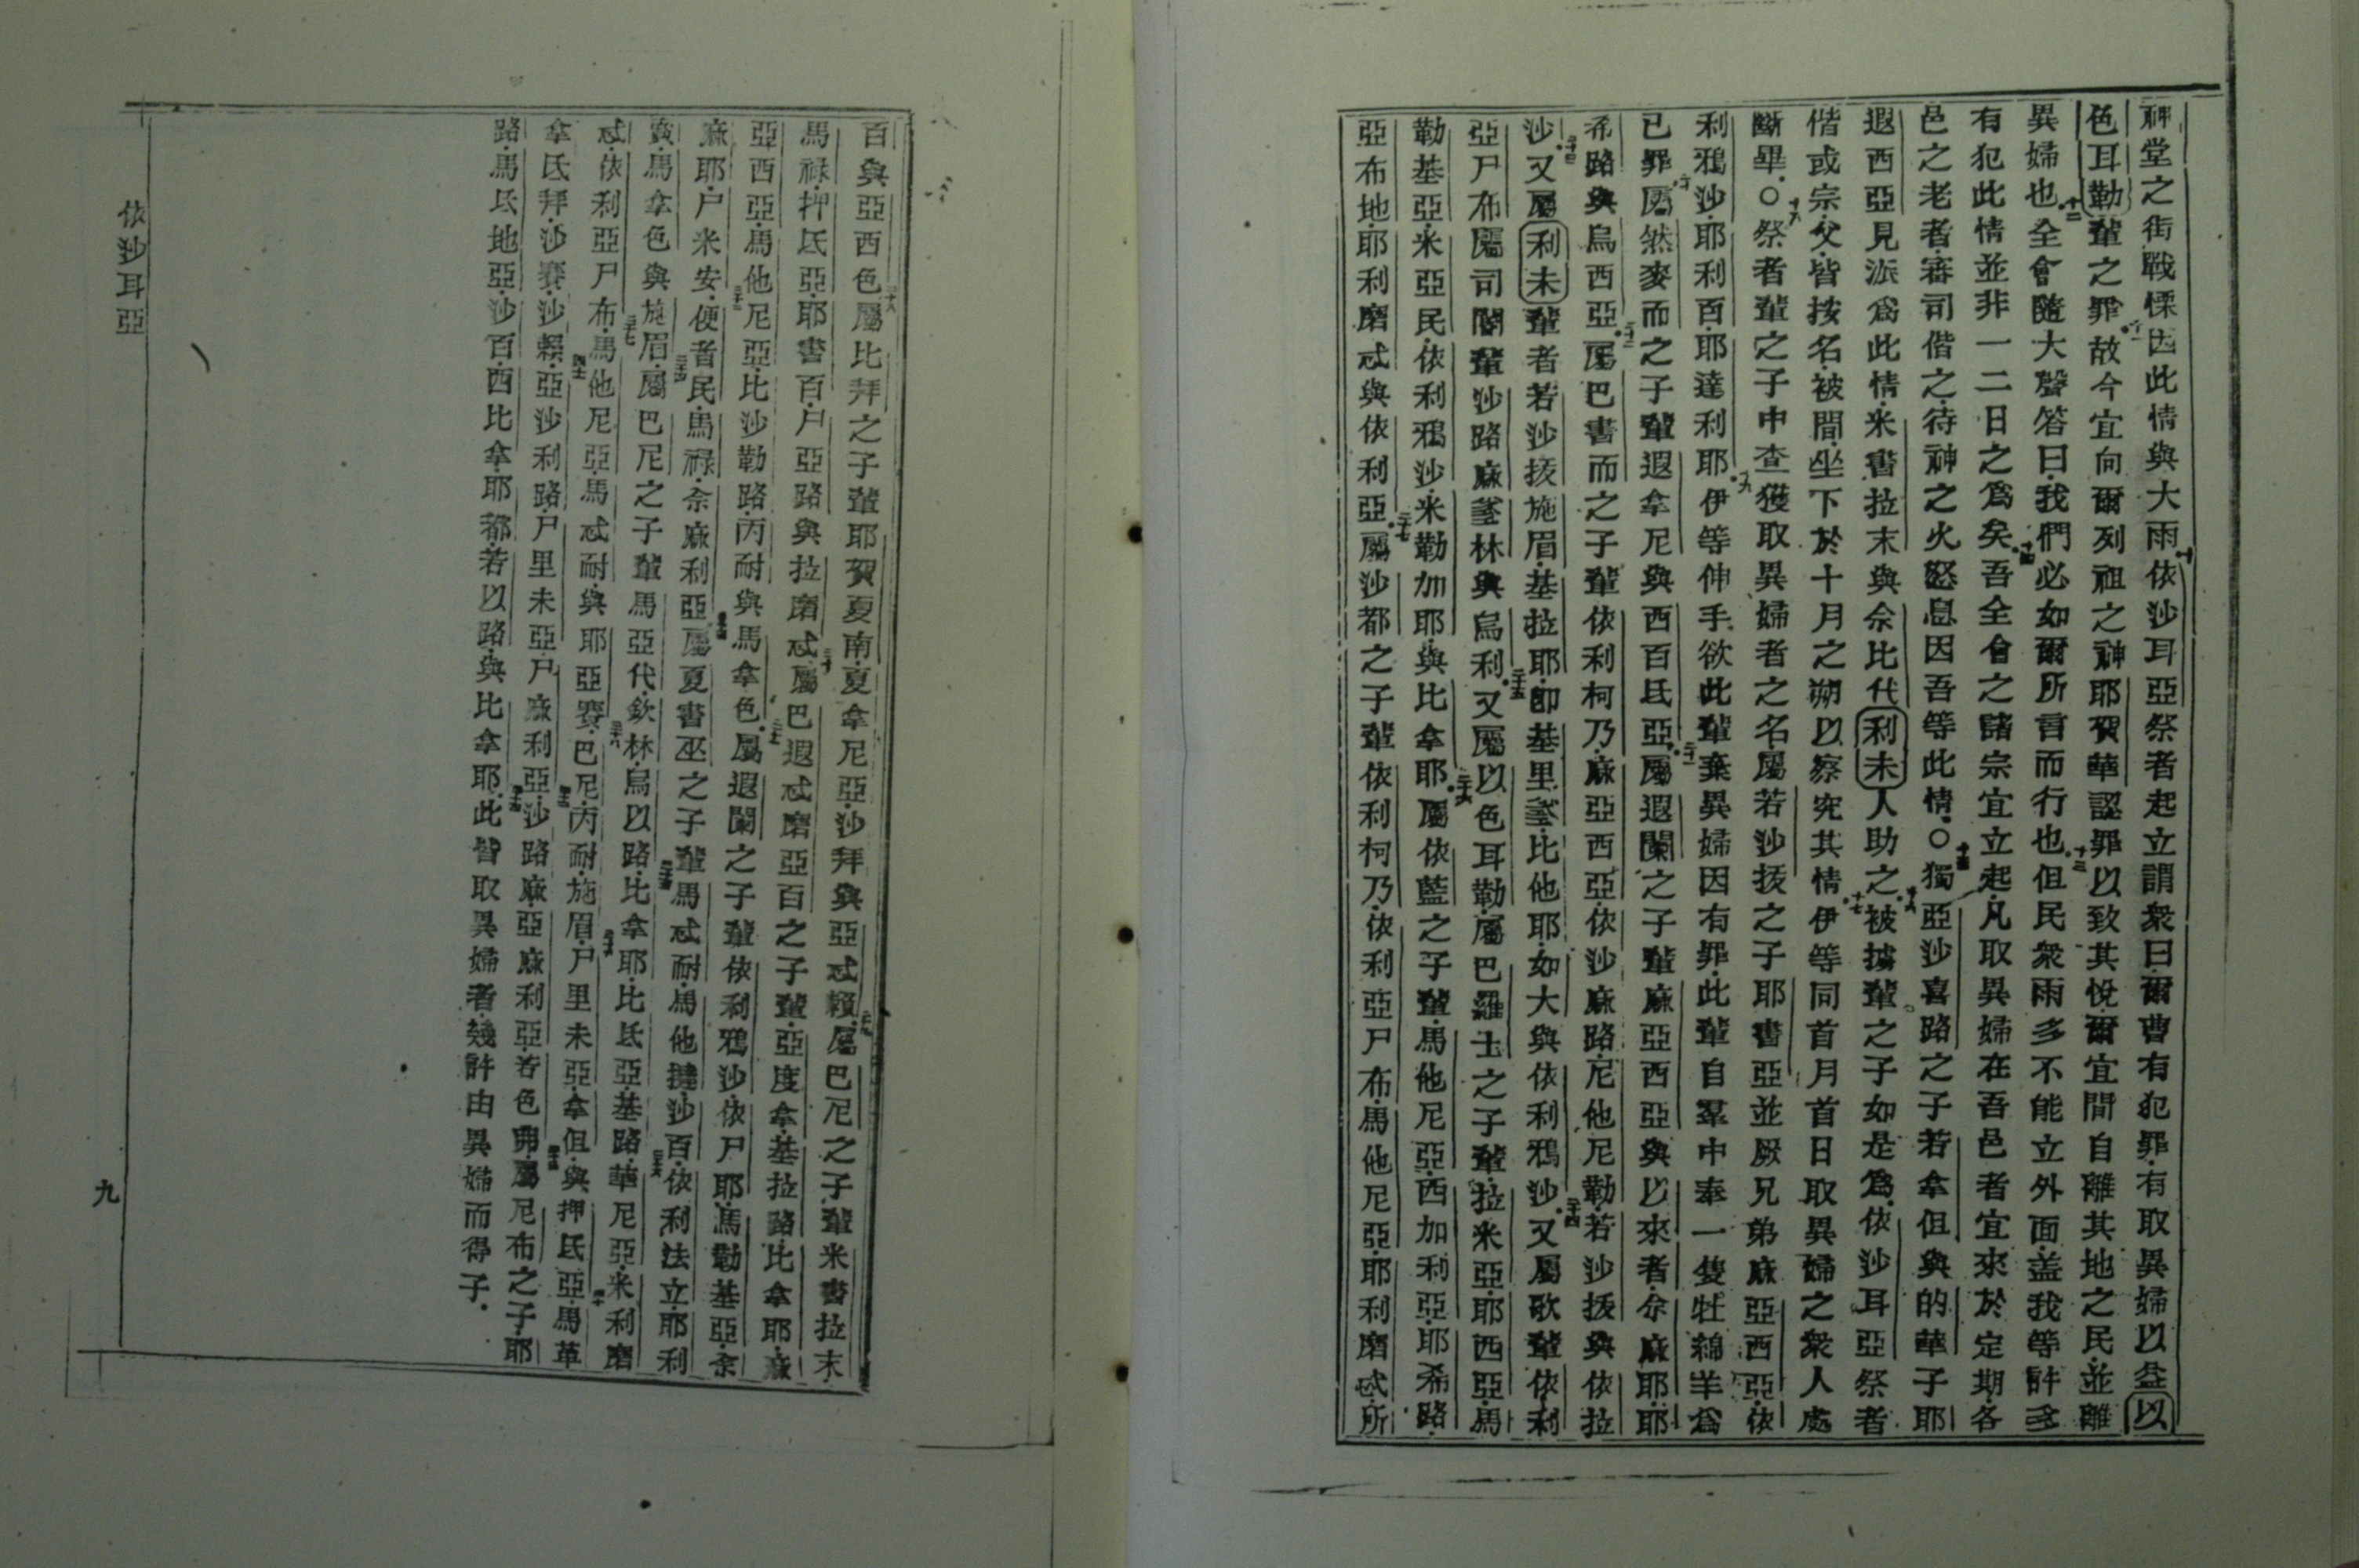 神堂之街戰慄因此情與大雨十依沙耳亞祭者起立謂衆曰爾曹有犯罪有取異婦以益以
色耳勒輩之罪十一故今宜向爾列祖之神耶賀華認罪以致其悅爾宜間自離其地之民並離
異婦也十二全會隨大聲答曰我們必如爾所言而行也十三但民衆雨多不能立外面盖我等許多
有犯此情並非一二日之爲矣十四吾全會之諸宗宜立起凡取異婦在吾邑者宜來於定期各
邑之老者審司偕之待神之火怒息因吾等此情○十五獨亞沙喜路之子若拿但與的華子耶
遐西亞見派爲此情米書拉末與佘比代利未人助之十六被擄輩之子如是爲依沙耳亞祭者
偕或宗父皆按名被間坐下於十月之朔以察究其情十七伊等同首月首日取異婦之衆人處
斷畢○十八祭者輩之子中查獲取異婦者之名屬若沙拔之子耶書亞並厥兄弟麻亞西亞依
利鴉沙耶利百耶達利耶十九伊等伸手欲此輩棄異婦因有罪此輩自羣中奉一隻牡綿羊爲
已罪二十屬然麥而之子輩遐拿尼與西百氐亞二十一屬遐闌之子輩麻亞西亞與以來者佘麻耶耶
希路與烏西亞二十二屬巴書而之子輩依利柯乃麻亞西亞依沙麻路尼他尼勒若沙拔與依拉
沙二十三又屬利未輩者若沙拔施眉基拉耶卽基里䥯比他耶如大與依利鴉沙二十四又屬歌輩依利
亞尸布屬司閽輩沙路麻䥯林與烏利二十五又屬以色耳勒屬巴羅士之子輩拉米亞耶西亞馬
勒基亞米亞民依利鴉沙米勒加耶與比拿耶二十六屬依藍之子輩馬他尼亞西加利亞耶希路
亞布地耶利磨忒與依利亞二十七屬沙都之子輩依利柯乃依利亞尸布馬他尼亞耶利磨忒所
百與亞西色二十八屬比拜之子輩耶賀夏南夏拿尼亞沙拜與亞忒賴二十九屬巴尼之子輩米書拉末
馬祿押氐亞耶書百尸亞路與拉磨忒三十屬巴遐忒磨亞百之子輩亞度拿基拉路比拿耶麻
亞西亞馬他尼亞比沙勒路丙耐與馬拿色三十一屬遐闌之子輩依利鴉沙依尸耶馬勒基亞佘
麻耶尸米安三十二便者民馬祿佘麻利亞三十三屬夏書巫之子輩馬忒耐馬他撻沙百依利法立耶利
賣馬拿色與施眉三十四屬巴尼之子輩馬亞代欽林烏以路三十五比拿耶比氐亞基路三十六華尼亞米利磨
忒依利亞尸布三十七馬他尼亞馬忒耐與耶亞賽三十八巴尼丙耐施眉三十九尸里未亞拿但與押氐亞四十馬革
拿氐拜沙賽沙賴四十一亞沙利路尸里未亞尸麻利亞四十二沙路麻亞麻利亞若色弗四十三屬尼布之子耶
路馬氐地亞沙百西比拿耶都若以路與比拿耶四十四此皆取異婦者幾許由異婦而得子
依沙耳亞
九